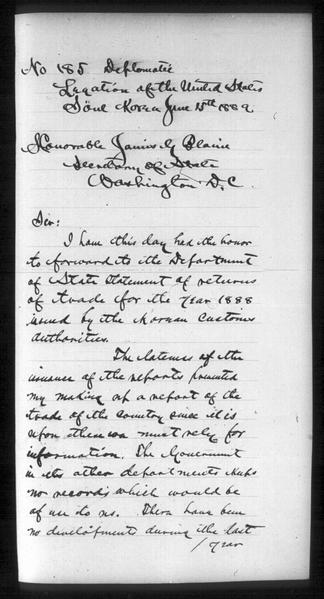 No 185 Diplomatic
Legation of the United States
Söul Korea June 15th 1889
Honorable James G Blaine
Secretary of State
Washington D.C.
Sir:
I have this day had the honor
to forward to the Department
of State Statement of returns
of trade for the Year 1888
issued by the Korean Customs
authorities.
The lateness of the
issuance of the reports prevented
my making up a report of the
trade of the country since it is
upon them we must rely for
information. The Government
in its other departments keeps
no records which would be
of use to us. There have been
no developments during the last
/ year